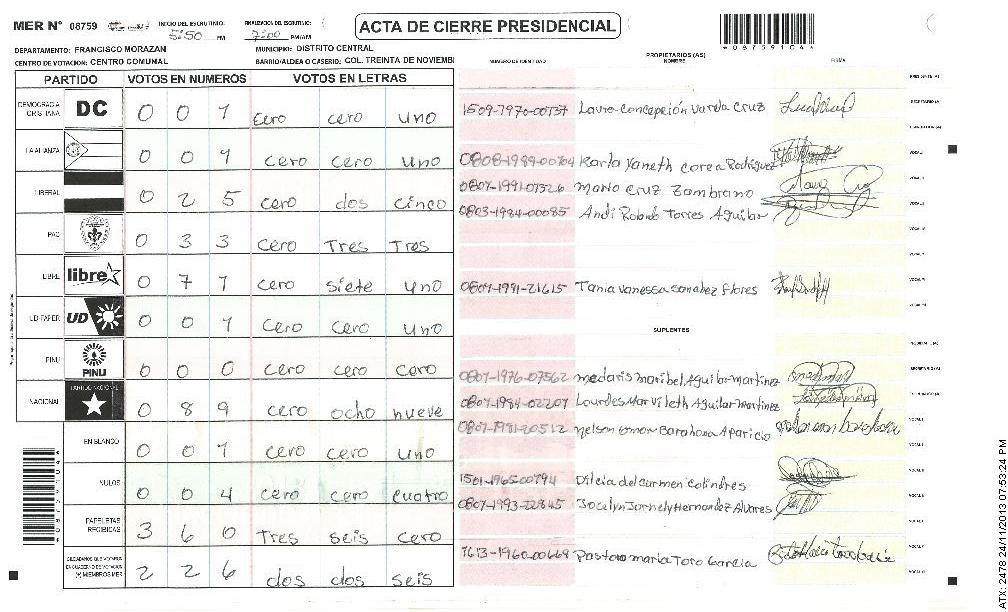 MER N° 08759 INICIO DEL ESCRUTINIO: 5:50 PM FINALIZACION DEL ESCRUTINIO: 7:00 PM/AM ACTA DE CIERRE PRESIDENCIAL
*08759104*
DEPARTAMENTO: FRANCISCO MORAZAN MUNICIPIO: DISTRITO CENTRAL
CENTRO DE VOTACION: CENTRO COMUNAL BARRIO/ALDEA O CASERIO: COL. TREINTA DE NOVIEMBR
NUMERO DE IDENTIDAD PROPIETARIOS (AS) NOMBRE FIRMA
PARTIDO VOTOS EN NUMEROS VOTOS EN LETRAS
DEMOCRACIA CRISTIANA DC 0 0 1 cero cero uno
LA ALIANZA 0 0 1 cero cero uno
LIBERAL 0 2 5 cero dos cinco
PAC 0 3 3 cero Tres Tres
LIBRE libre 0 7 1 cero siete uno
UD-FAPER UD 0 0 1 cero cero uno
PINU PINU 0 0 0 cero cero cero
NACIONAL PARTIDO NACIONAL 0 8 9 cero ocho nueve
EN BLANCO 0 0 1 cero cero uno
NULOS 0 0 4 cero cero cuatro
PAPELETAS RECIBIDAS 3 6 0 Tres seis cero
CIUDADANOS QUE VOTARON EN CUADERNO DE VOTACION (+) MIEMBROS MER 2 2 6 dos dos seis
1509-1970-00737 Laura Concepción Varela Cruz
0808-1989-00704 Karla Yaneth Corea Rodriguez
0801-1991-07326 Mario Cruz Zambrano
0803-1984-00085 Andi Rolando Torres Aguilar
0801-1991-21615 Tania Vanessa Sanchez Flores
SUPLENTES
0801-1976-07562 medaris maribel Aguilar martinez
0801-1984-02207 Lourdes Marvileth Aguilar Martinez
0801-1981-20512 nelson omar Barahona Aparicio
1501-1965-00794 Dilcia del carmen Colindres
0801-1993-22845 Jocelyn Jarhely Hernandez Alvares
1613-1960-00668 Pastora maria Toro Garcia
ATX: 2478 24/11/2013 07:53:24 PM